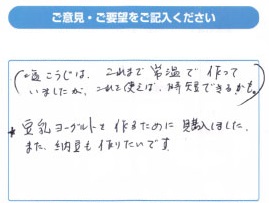 ご意見・ご要望をご記入ください
(塩こうじは、これまで常温で作って
いましたが、これを使えば、時短できるかも。)
* 豆乳ヨーグルトを作るために購入しました。
また、納豆も作りたいです